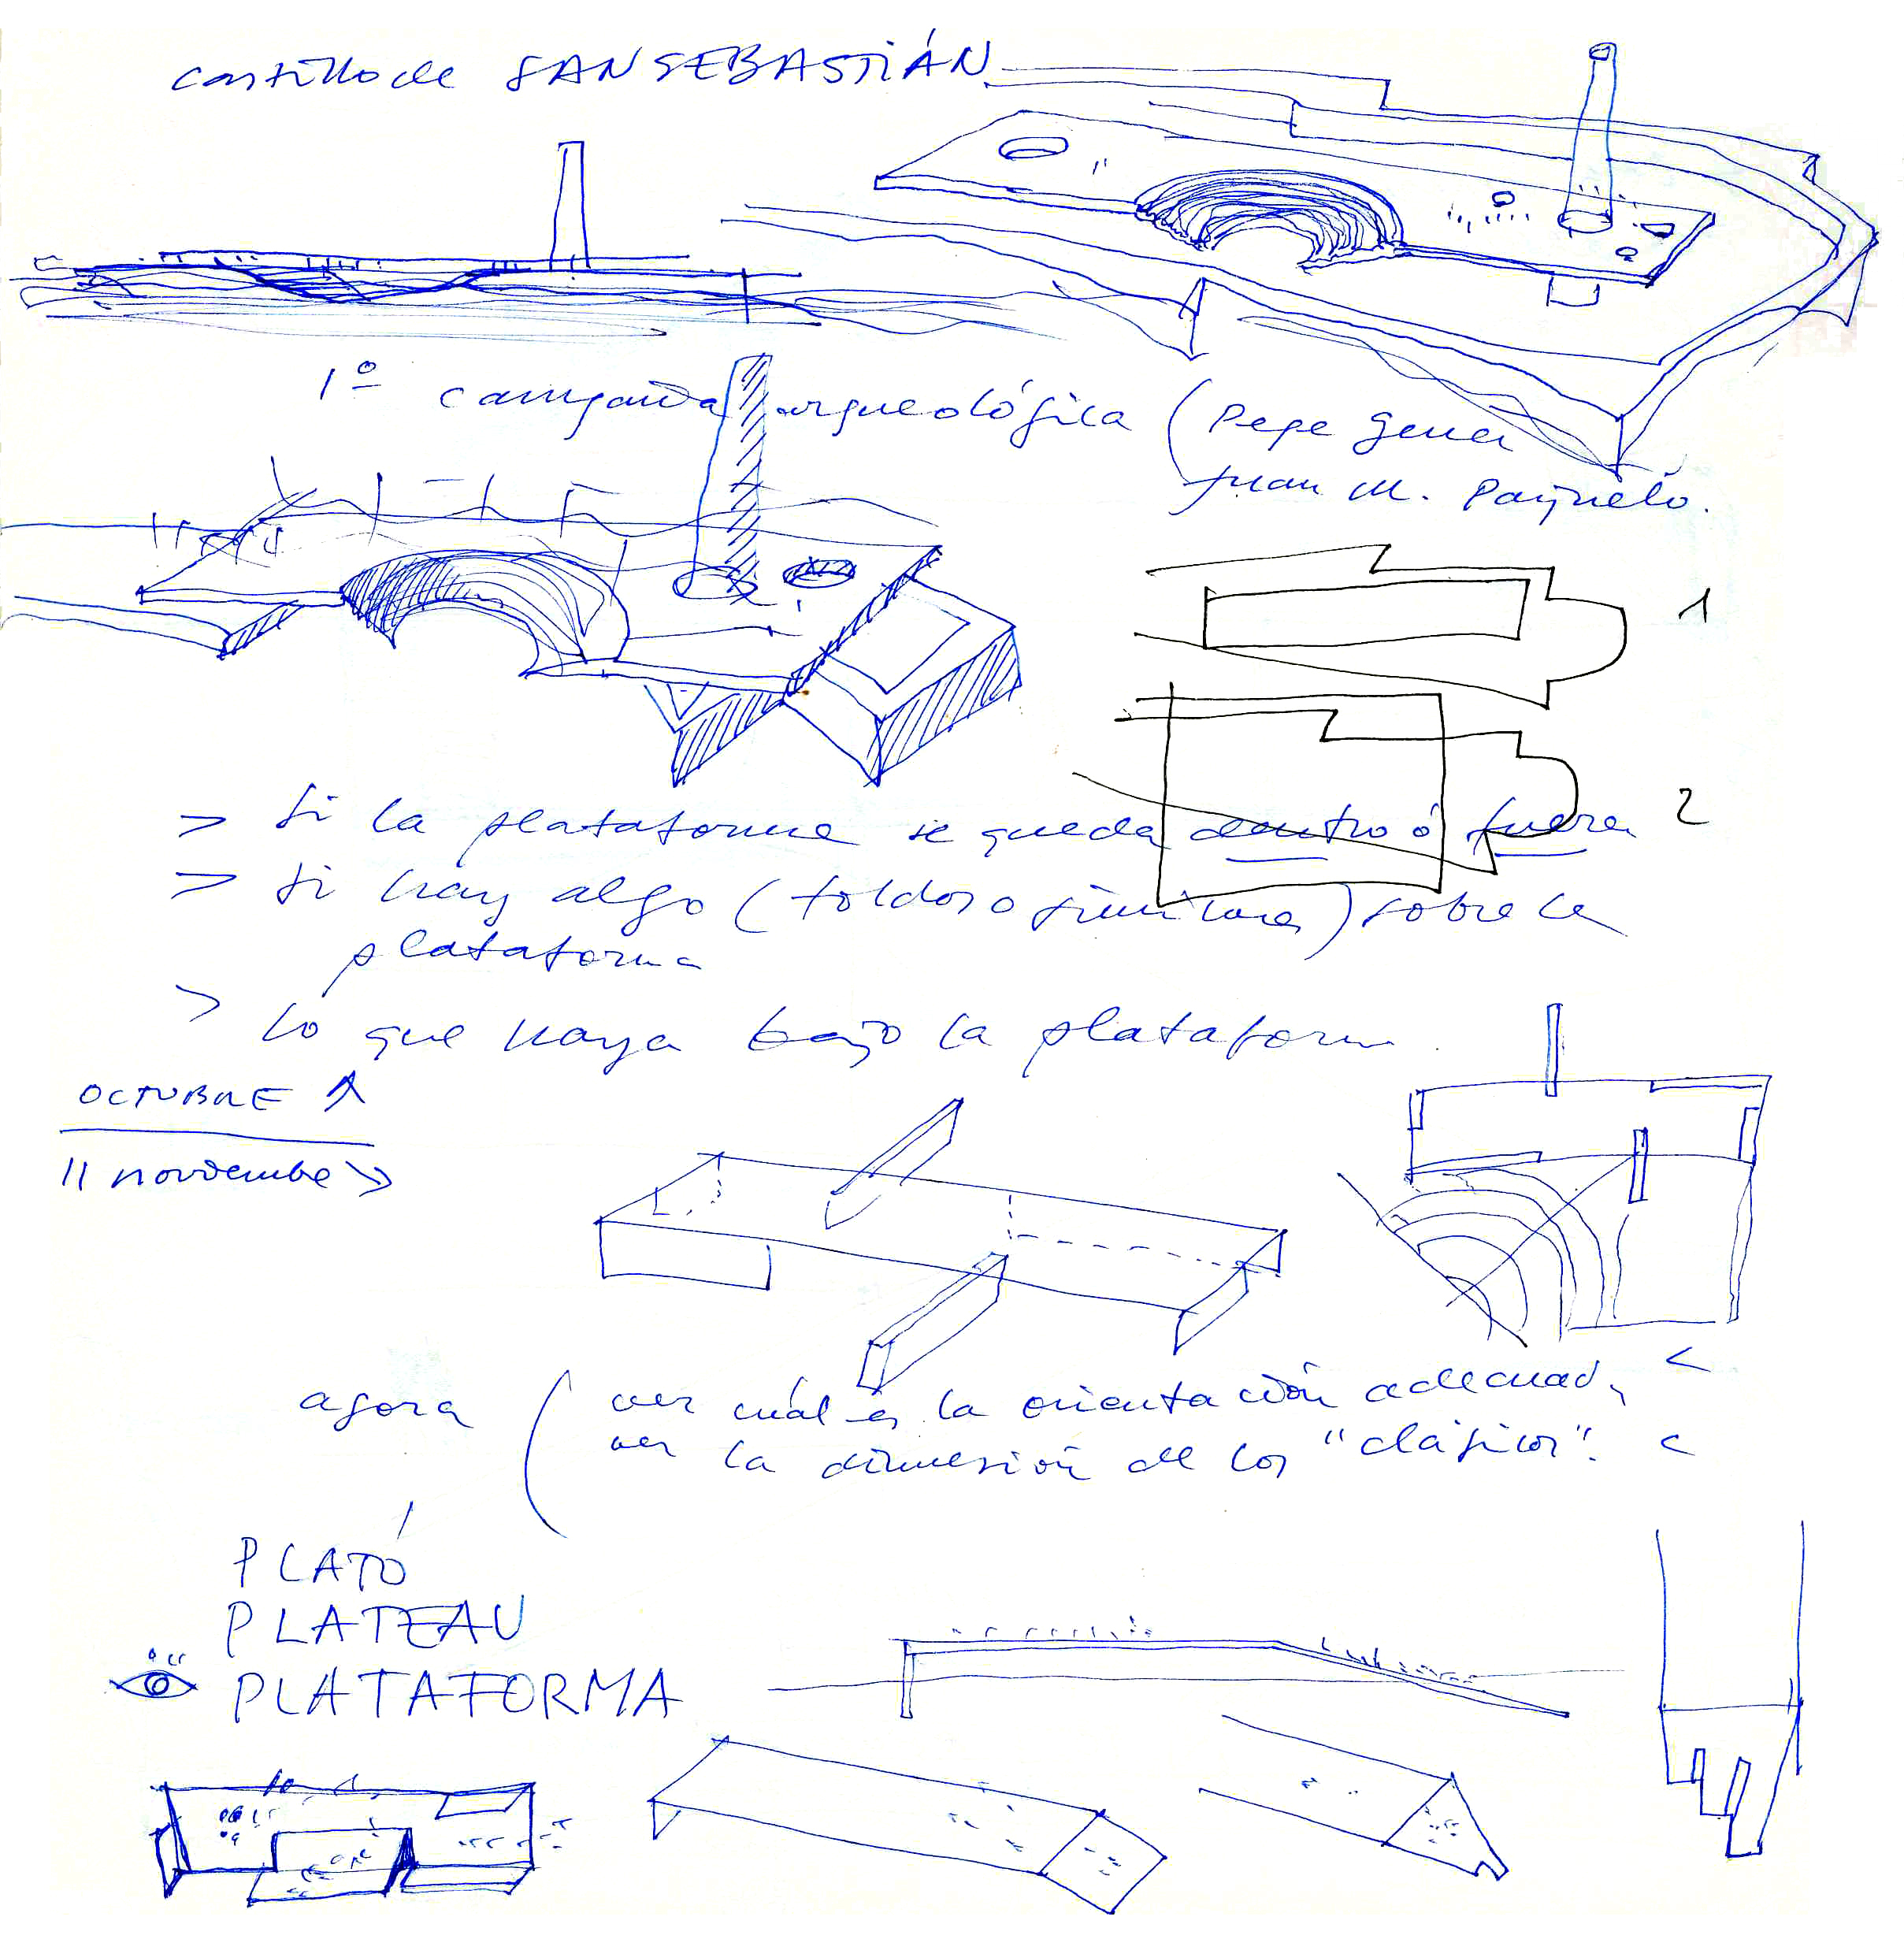 castillo de SAN SEBASTIÁN
1º campaña arqueológica (Pepe Gener
Juan M. Pajuelo.
1
2
> Si la plataforma se queda dentro ó fuera
> Si hay algo (toldos o similares) sobre la
plataforma
> lo que haya bajo la plataforma.
OCTUBRE
11 noviembre
agora ( ver cuál es la orientación adecuada <
ver la dimensión de los "clásicos". <
PLATÓ
PLATEAU
PLATAFORMA